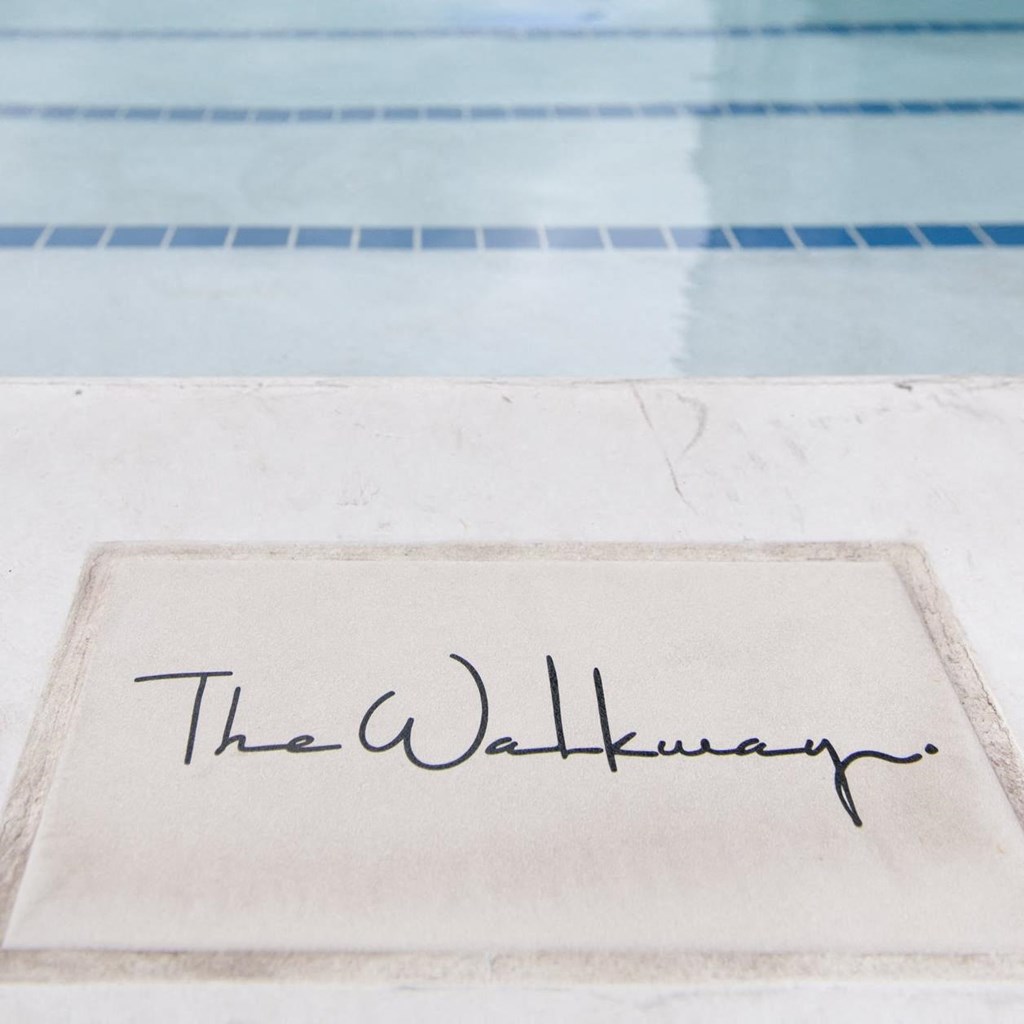 The Walkway.